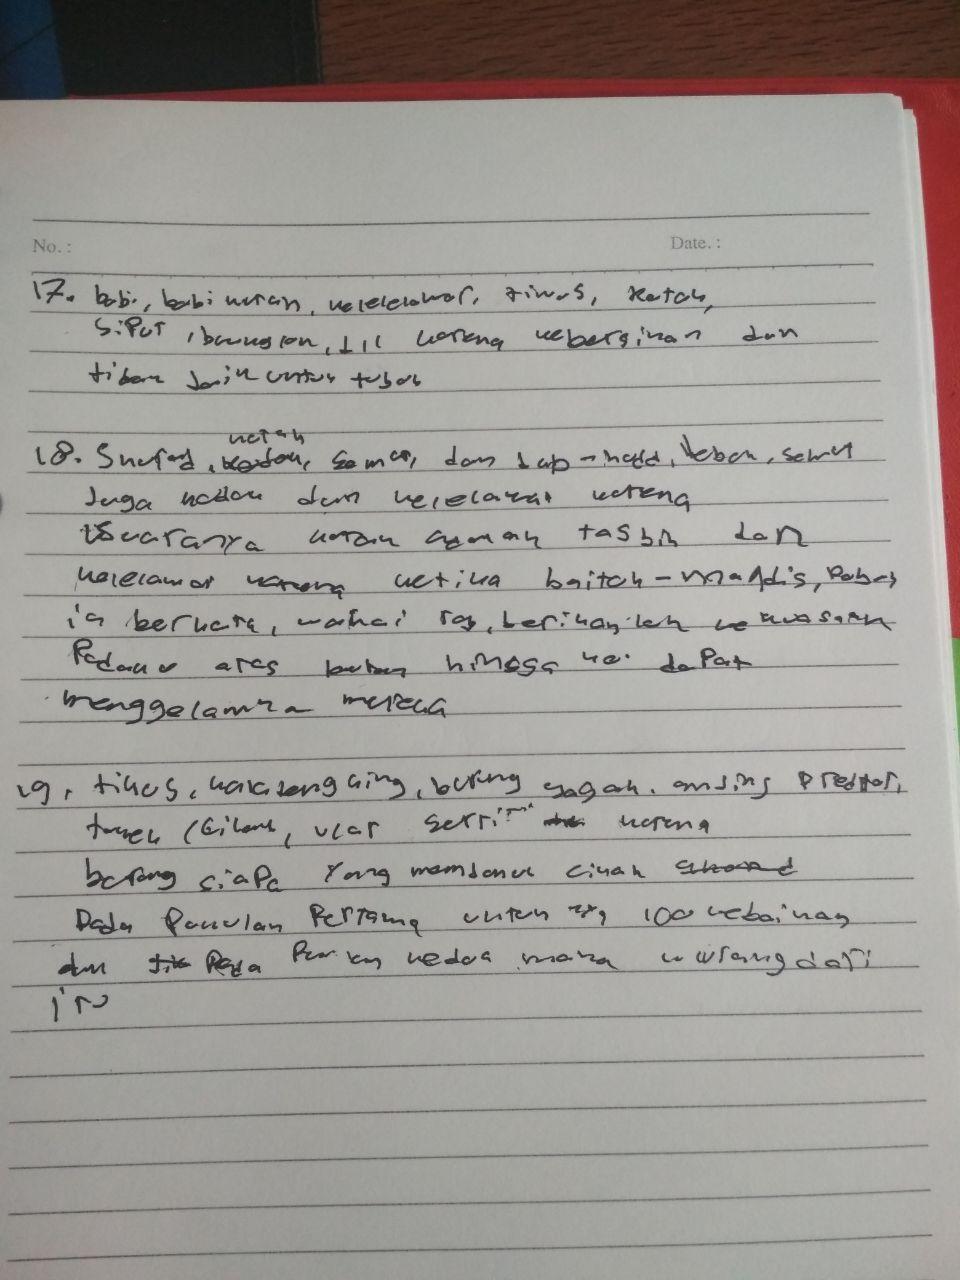 No. :
Date. :
17. babi, babi hutan, kelelawar, tikus, katak,
siput, bunglon, dll karena kebersihan dan
tidak baik untuk tubuh
18. Shurad, katak, semut, dan hud-hud, lebah, semut
Juga katak dan kelelawar karena
suaranya katak adalah tasbih dan
kelelawar karena ketika baitah-maqdis,
ia berkata, wahai rab, berikanlah kekuasaan
Padaku atas hingga dapat
menggelamkan mereka
19. tikus, kalajengking, burung gagak, anjing predator,
tokek (cicak, ular karena
barang siapa yang membunuh cicak
Pada Pukulan Pertama untuk 100 kebaikan
dan Pada kedua maka kurang dari
itu